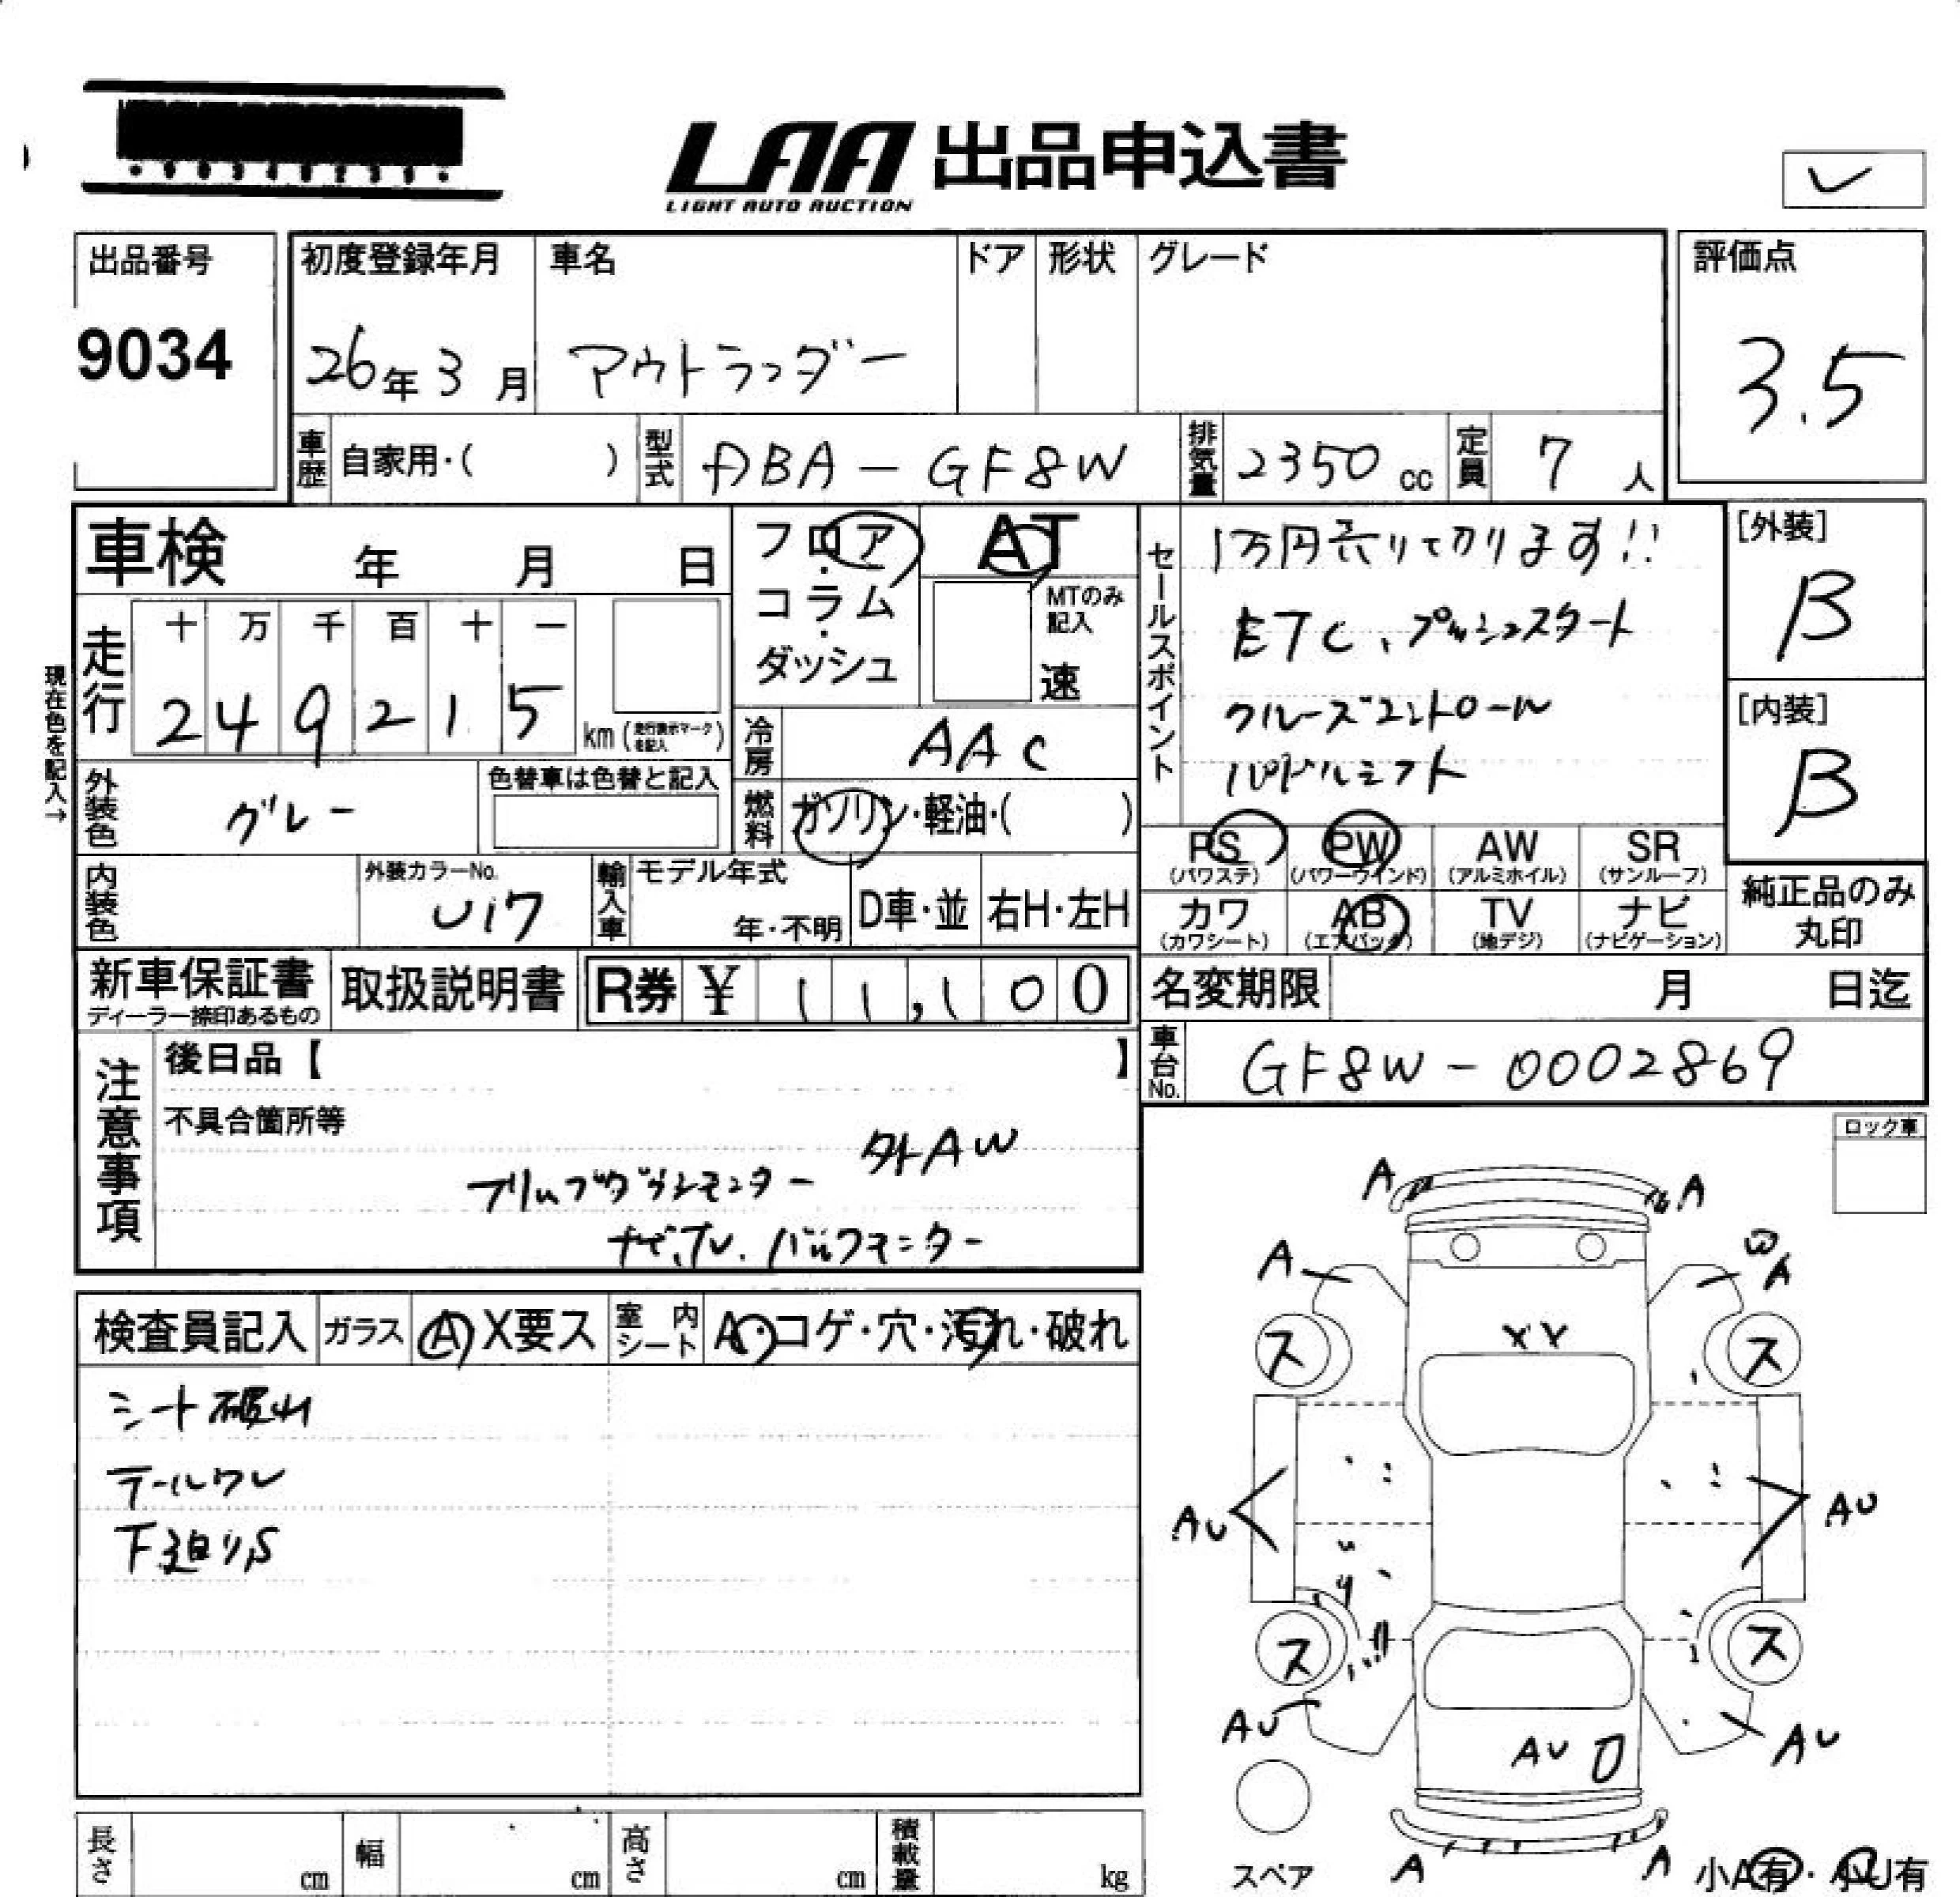 LAA 出品申込書
LIGHT AUTO AUCTION
出品番号
9034
初度登録年月
26年3月
車名
アウトランダー
ドア
形状
グレード
評価点
3.5
車歴
自家用・( )
型式
DBA-GF8W
排気量
2350 cc
定員
7 人
車検 年 月 日
フロア・コラム・ダッシュ
AT
MTのみ記入
速
セールスポイント
1万円売り切ります!!
ETC、プッシュスタート
クルーズコントロール
パドルシフト
[外装]
B
[内装]
B
現在色を記入→
走行
十 万 千 百 十 一
2 4 9 2 1 5
km (走行表示マークを記入)
冷房
AAC
外装色
グレー
色替車は色替と記入
燃料
ガソリン・軽油・( )
PS
(パワステ)
PW
(パワーウインド)
AW
(アルミホイル)
SR
(サンルーフ)
カワ
(カワシート)
AB
(エアバック)
TV
(地デジ)
ナビ
(ナビゲーション)
純正品のみ
丸印
内装色
外装カラーNo.
U17
輸入車
モデル年式
年・不明
D車・並
右H・左H
新車保証書
ディーラー捺印あるもの
取扱説明書
R券 ¥ 11,100
名変期限 月 日迄
車台No.
GF8W-0002869
注意事項
後日品【 】
不具合箇所等
外AW
フリップダウンモニター
ナビ、TV、バックモニター
ロック車
検査員記入
ガラス
A X要ス
室内シート
A・コゲ・穴・汚れ・破れ
シート破れ
テールワレ
下廻りS
A A
A W A
XX
ス ス
AU AU
ス ス
AU AU
AU
A A
スペア
小A有・小U有
長さ cm
幅 cm
高さ cm
積載量 kg